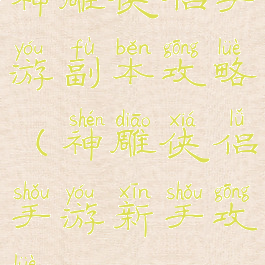 神雕侠侣手
yóu fù běn gōng lüè
游副本攻略
shén diāo xiá lǚ
（神雕侠侣
shǒu yóu xīn shǒu gōng
手游新手攻
lüè